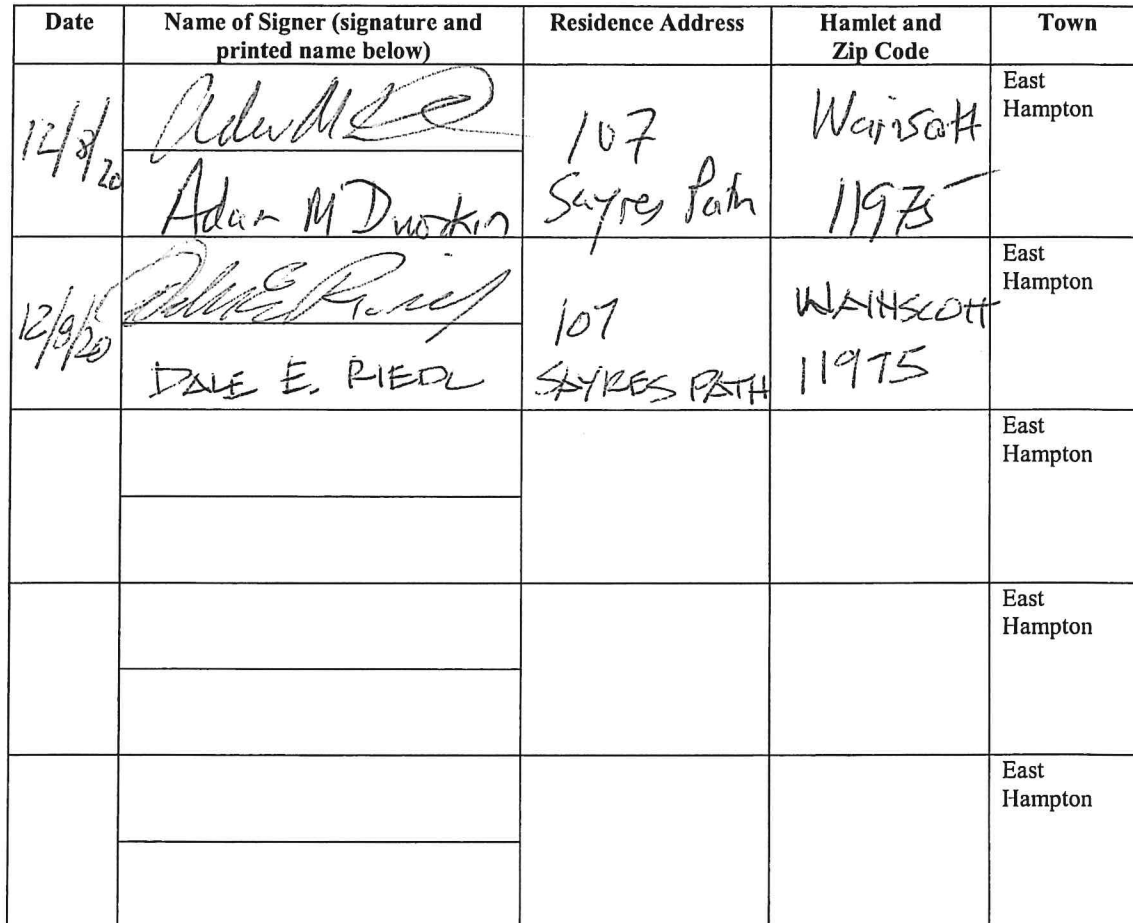 Date
Name of Signer (signature and
printed name below)
Residence Address
Hamlet and
Zip Code
Town
12/8/20
Adam M Dworkin
107
Sayres Path
Wainscott
11975
East
Hampton
12/8/20
DALE E. RIEDL
107
SAYRES PATH
WAINSCOTT
11975
East
Hampton
East
Hampton
East
Hampton
East
Hampton